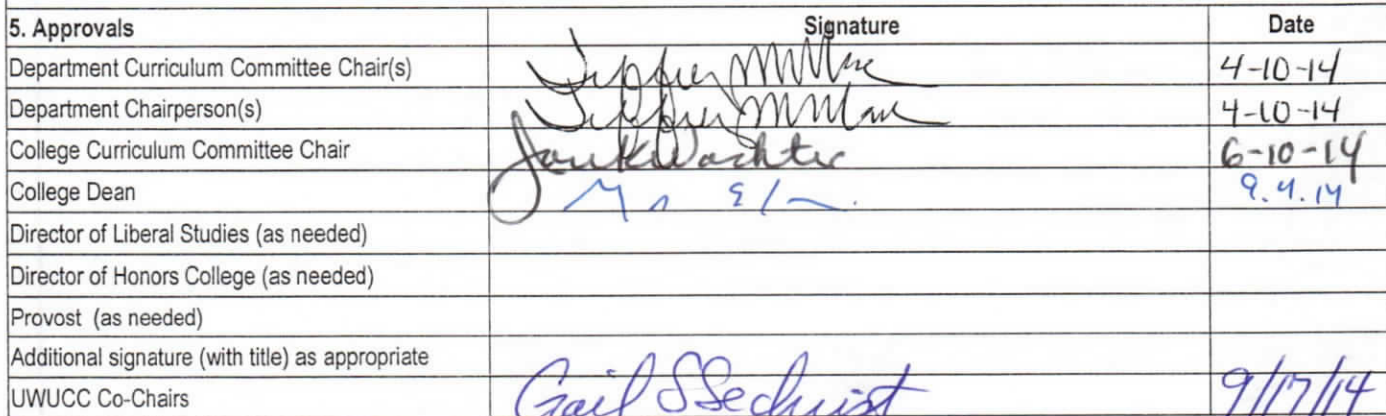 5. Approvals Signature Date
Department Curriculum Committee Chair(s) 4-10-14
Department Chairperson(s) 4-10-14
College Curriculum Committee Chair 6-10-14
College Dean 9.4.14
Director of Liberal Studies (as needed)
Director of Honors College (as needed)
Provost (as needed)
Additional signature (with title) as appropriate
UWUCC Co-Chairs Gail S Sechrist 9/17/14